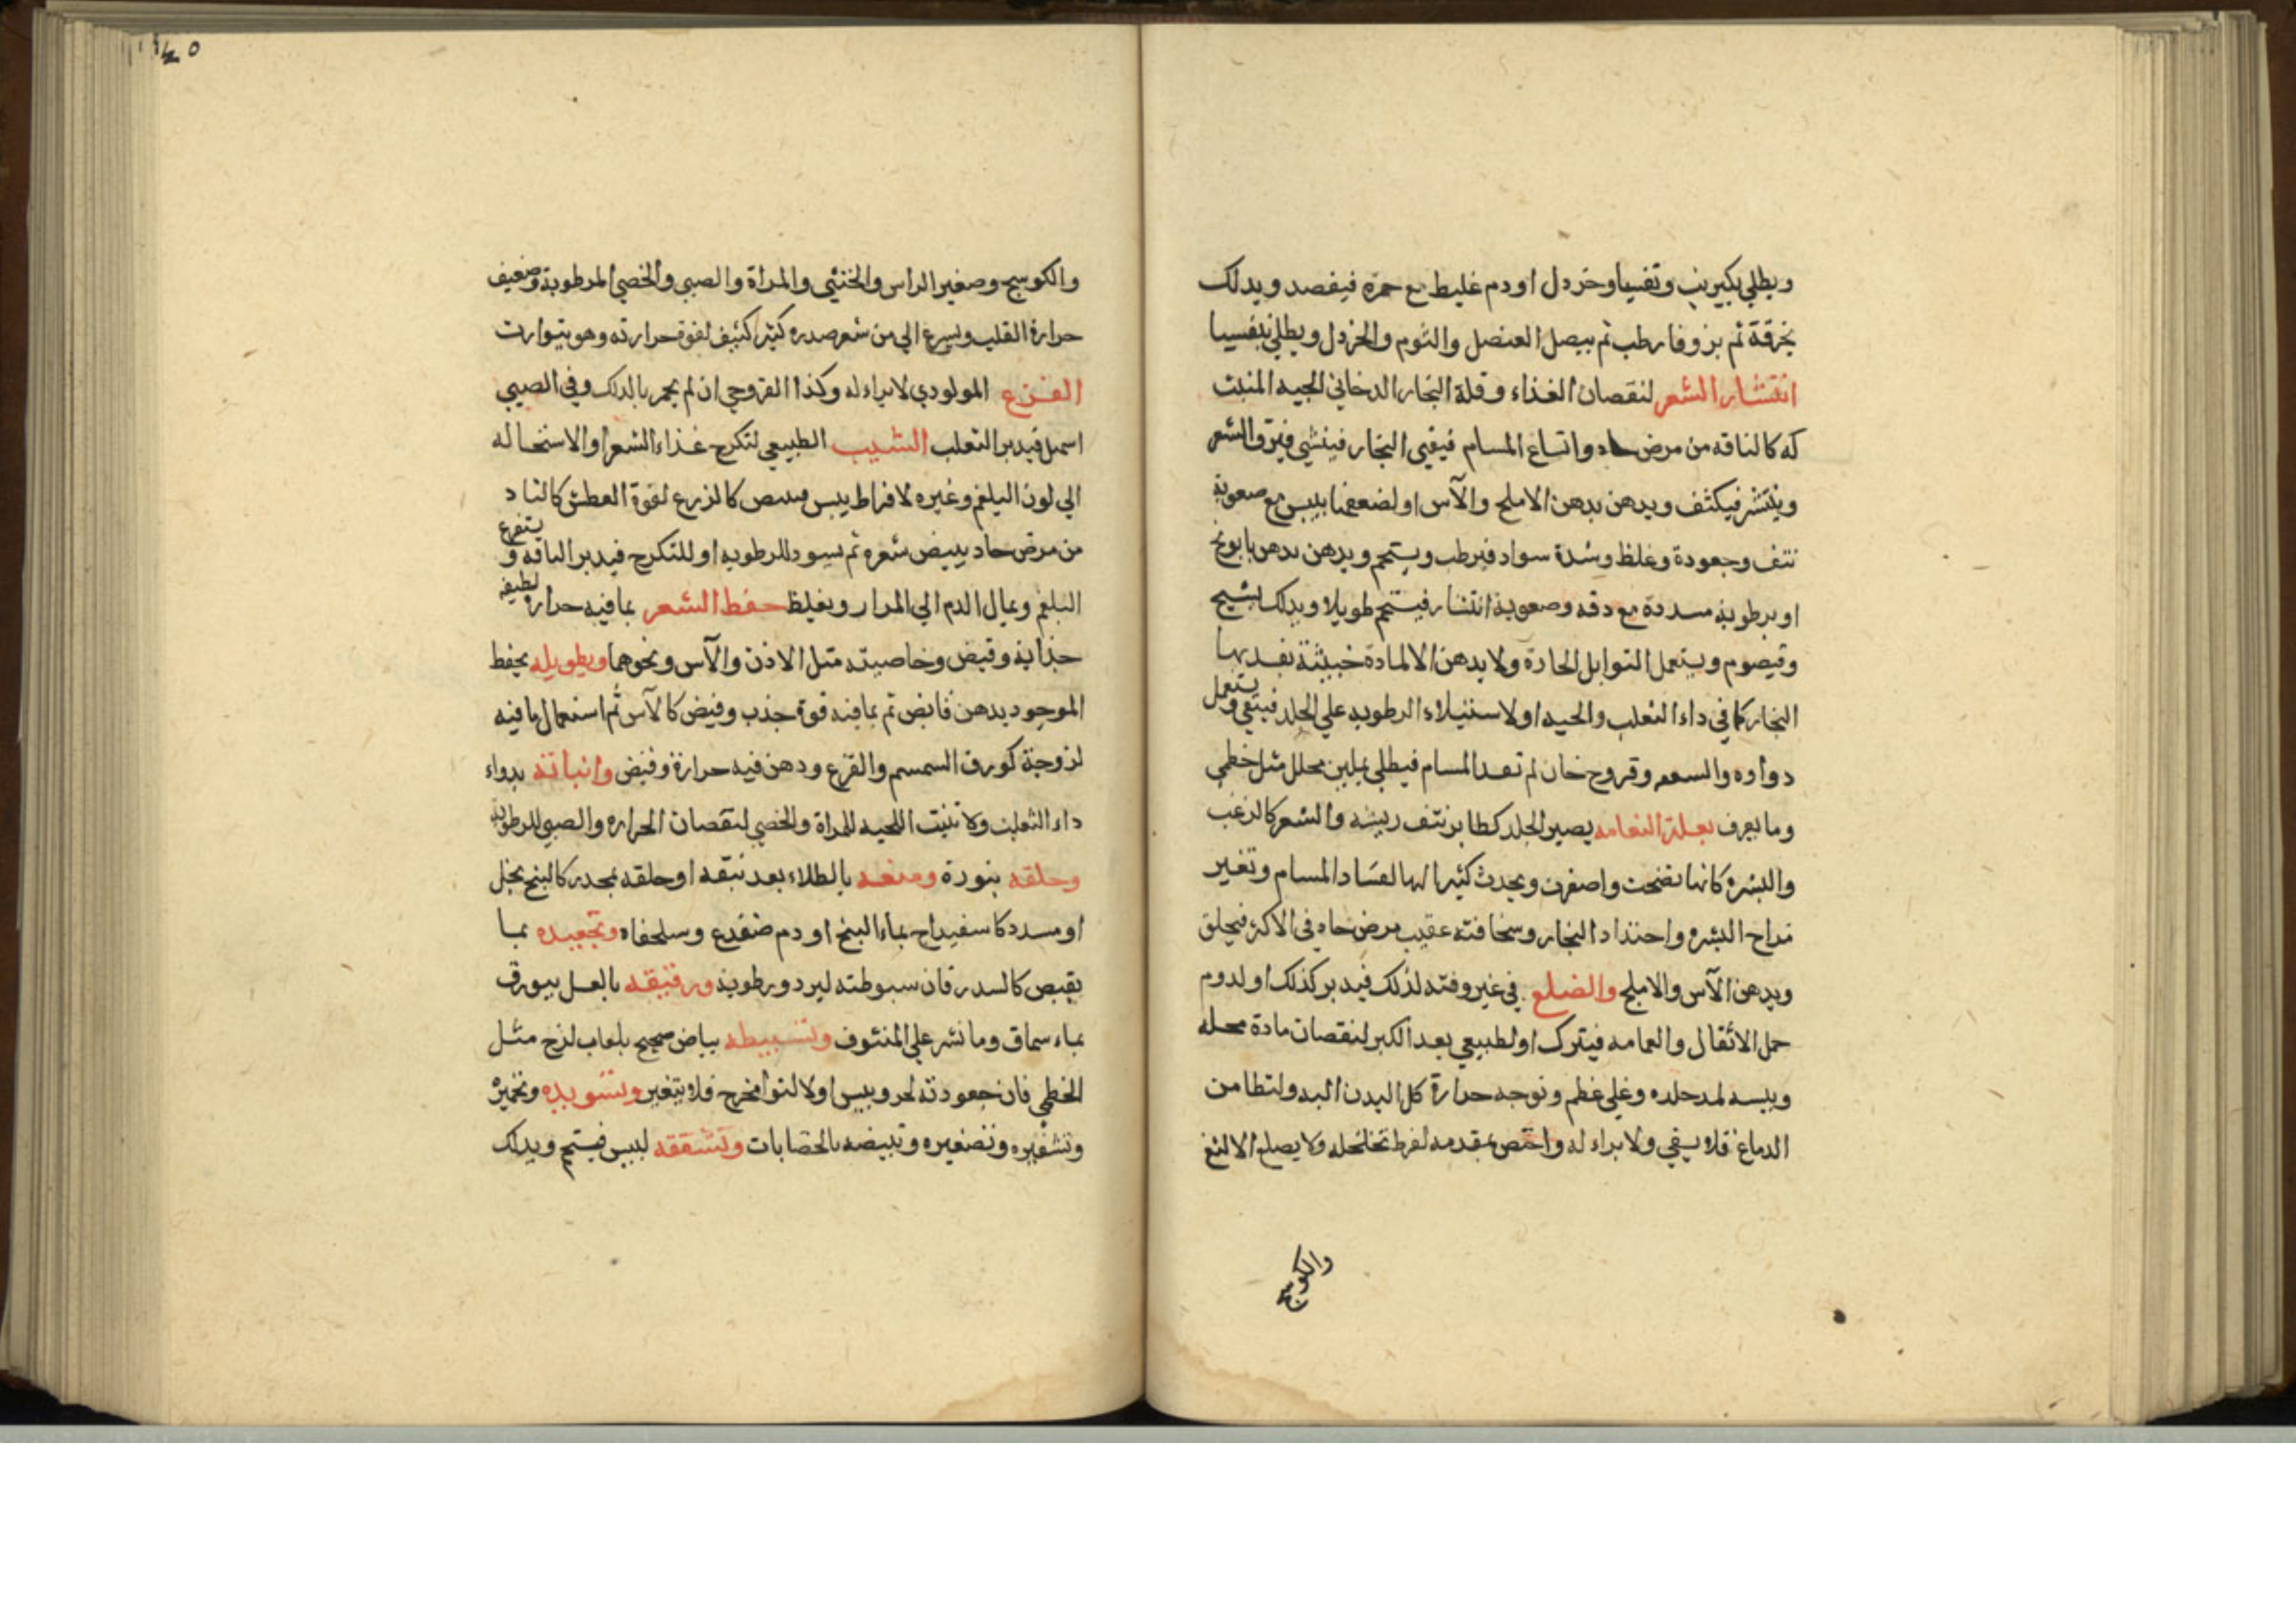 ويطلي بكبريت وتفسيا وخردل او دم غليط مع حمرة فيفصد ويدلك
بخرقة ثم بزوفا رطب ثم ببصل العنصل والثوم والخردل ويطلي بتفسيا
انتشار الشعر لنقصان الغذاء وقلة البخار الدخاني الجيد المنبت
له كالناقه من مرض حاد واتساع المسام فيقي البخار فينشي فيرق الشعر
وينتشر فيكثف ويدهن بدهن الاملج والآس او لضعفنا بيبس مع صعوبة
نتف وجعودة وغلظ وشدة سواد فيرطب ويستحم ويدهن بدهن بابونج
او برطوبة مسددة مع دقه وصعوبة انتشار فيستحم طويلا ويدلك بشيح
وقيصوم ويستعمل التوابل الحارة ولا يدهن الا لمادة خبيثة بفد بها
البخار كما في داء الثعلب والحيه او لاستيلاء الرطوبه علي الجلد فينقي ويستعمل
دواوه والسعفه وقروح خان لم تعد المسام فيطلي بملين محلل مثل خطمي
وما يعرف بعلة النعامه يصير الجلد كطاير نتف ريشه والشعر كالزغب
والبشرة كانها نضجت واصفرت ويحدث كثيرا لها لفساد المسام وتغير
مزاج البشره واحتداد البخار وسخافته عقيب مرض حاد في الاكثر فيحلق
ويدهن الآس والاملج والصلع في غير وقته لذلك فيدبر كذلك او لدوم
حمل الاثقال والعمامه فيترك او لطبيعي بعد الكبر لنقصان مادة محله
ويبسه لمد جلده وعلي عظم وتوجه حرارة كل البدن اليه ولتطامن
الدماغ فلا يسقي ولا براء له واختص بمقدمه لفرط تخلخله ولا يصلع الالثغ
والكوسج
والكوسج وصغير الراس والخنثي والمراة والصبي والخصي لرطوبة وضعيف
حرارة القلب ويسرع الي من شعر صدره كثير كثيف لقوة حرارته وهو يتوارث
القرع المولودي لا براء له وكذا القروحي ان لم يحمر بالدلك وفي الصبي
اسهل فيدبر الثعلب الشيب الطبيعي لتكرج غذاء الشعر او الاستحاله
الي لون البلغم وغيره لافراط يبس كالزرع لقوة العطش كالناد
من مرض حاد يبيض شعره ثم يسود للرطوبه او للتكرج فيدبر الناقه ويستفرغ
البلغم ويمال الدم الي المرار ويغلظ حفظ الشعر بما فيه حرارة لطيفه
جذابة وقبض وخاصيته مثل الاذن والآس ونحوهما وتطويله يحفظ
الموجود بدهن قابض ثم بما فيه قوة جذب وقبض كالآس ثم استعمال ما فيه
لزوجة كورق السمسم والقرع ودهن فيه حرارة وقبض وانباته بدواء
داء الثعلب ولا تنبت اللحيه للمراة والخصي لنقصان الحراره والصبي للرطوبة
وحلقه بنورة ومنعه بالطلاء بعد نتفه او حلقه بمخدر كالبنج بخل
او مسدد كاسفيداج بماء البنج او دم ضفدع وسلحفاه وتجعيده بما
يقبض كالسدر فان سبوطته لبرد ورطوبة وترقيقه بالعسل ببورق
بماء سماق وما نشر علي المنتوف وتسبيطه ببياض صحيح بلعاب لزج مثل
الخطمي فان جعودته لحر ويبس او لالتوا مخرج فلا يتغير وتسويده وتحميره
وتشقيره وتصفيره وتبيضه بالخضابات وتشققه ليبس فيستحم ويدلك